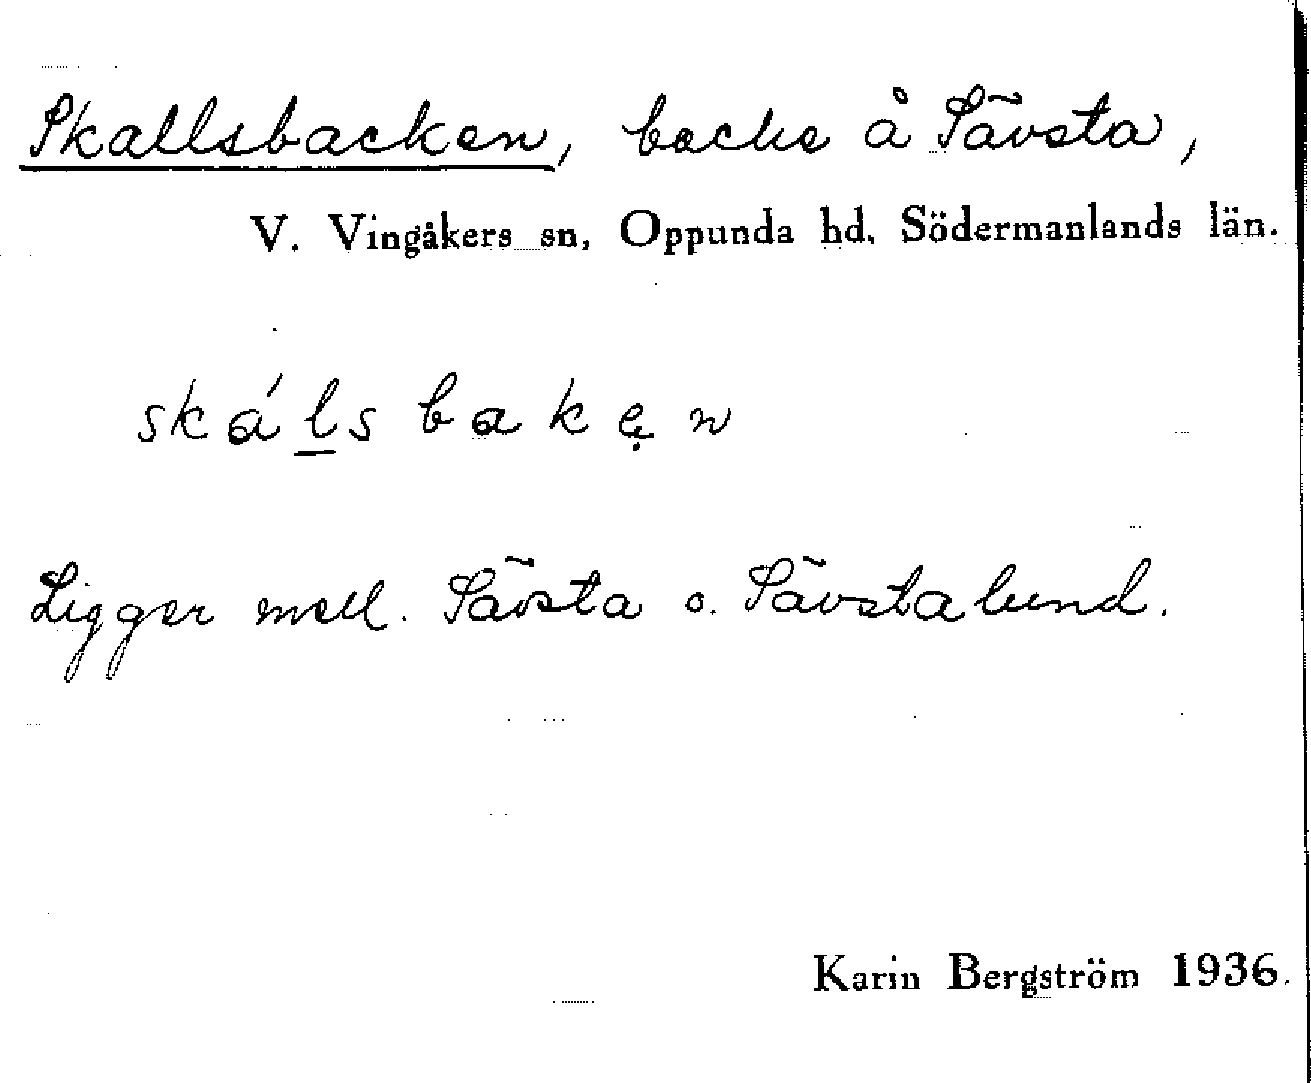 Skallsbacken, backe å Sävsta,
V. Vingåkers sn, Oppunda hd, Södermanlands län.
skálsbakęn
Ligger mell. Sävsta o. Sävstalund.
Karin Bergström 1936.